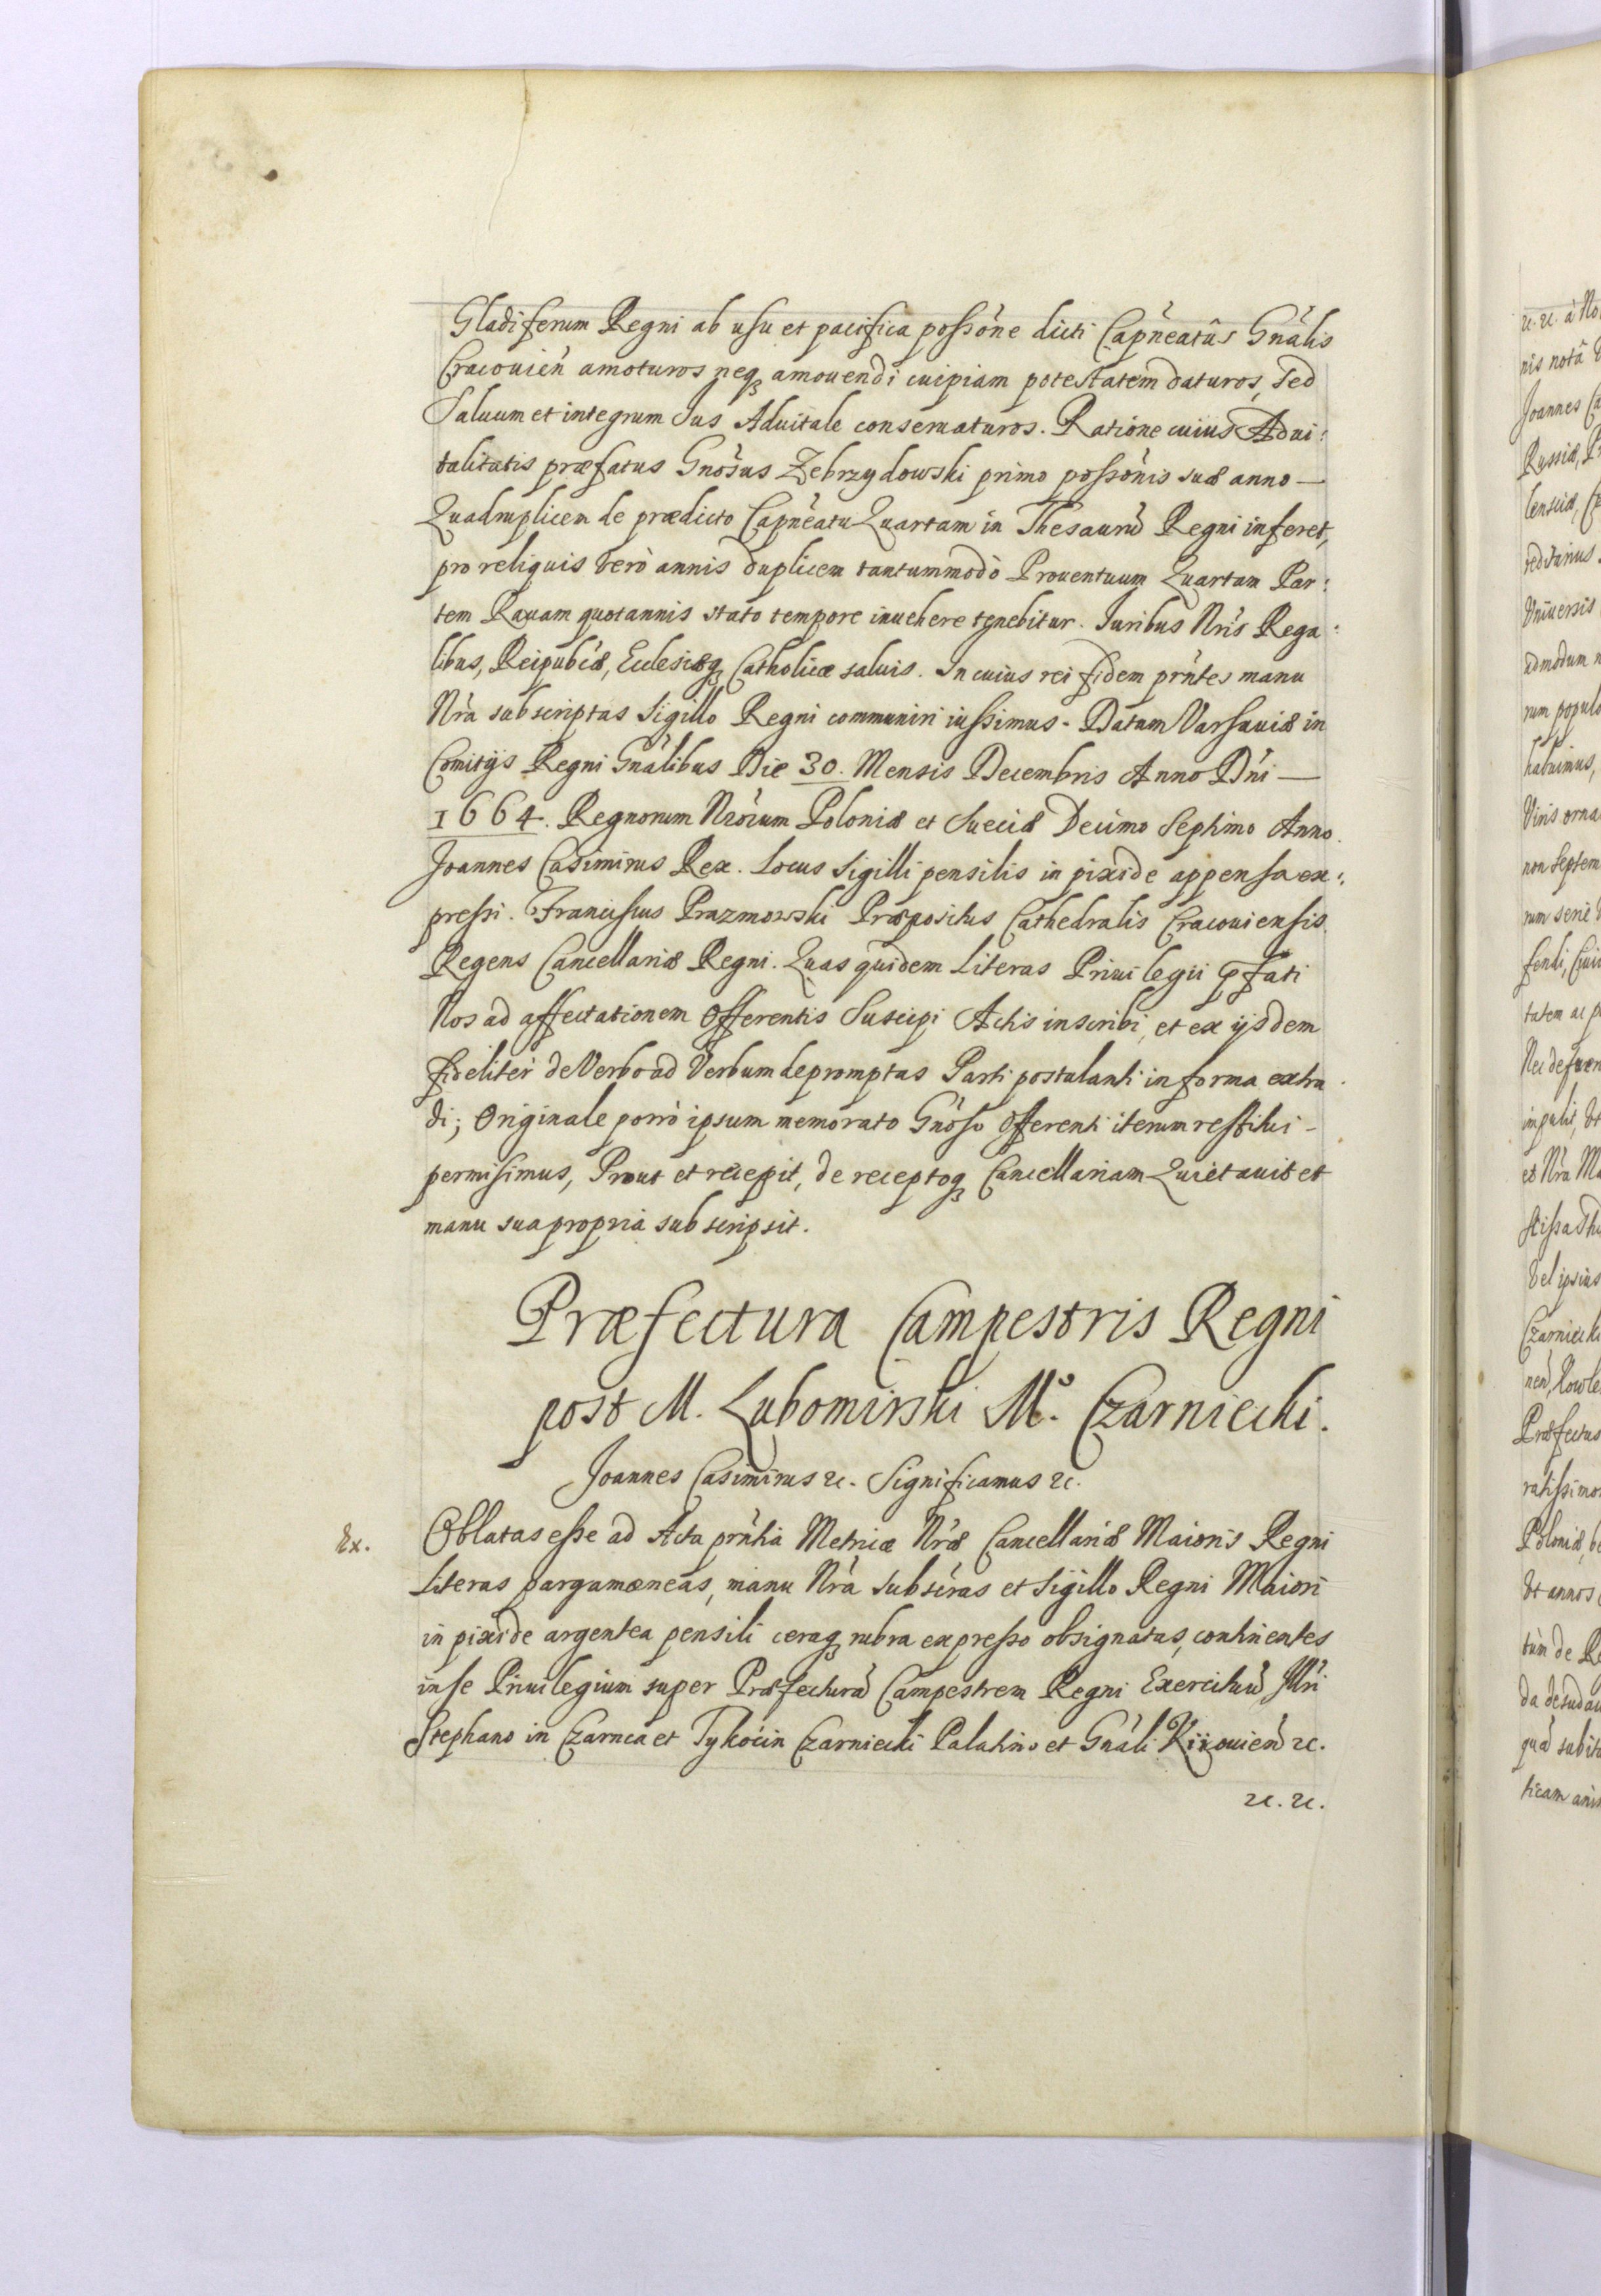 Gladiferum Regni ab usu et pacifica possone dicti Capneatûs Gnalis
Cracouien amoturos neq amouendi cuipiam potestatem daturos, sed
Saluum et integrum Jus Aduitale conseruaturos. Ratione cuius Adui:
talitatis præfatus Gnosus Zebrzydowski primo possonis suæ anno —
Quadruplicem de prædicto Capneatu Quartam in Thesauru Regni inferet,
pro reliquis verò annis duplicem tantummodò Prouentuum Quartam Par:
tem Rauam quotannis stato tempore inuehere tenebitur. Juribus Nris Rega:
libus, Reipubcæ, Ecclesiæq Catholicæ saluis. In cuius rei fidem prntes manu
Nra subscriptas Sigillo Regni communiri iussimus. Datum Varsauiæ in
Comitijs Regni Gnalibus Die 30. Mensis Decembris Anno Dni —
1664. Regnorum Nrorum Poloniæ et Sueciæ Decimo Septimo Anno.
Joannes Casimirus Rex. Locus Sigilli pensilis in pixide appensa ex:
pressi. Franciscus Prazmowski Præpositus Cathedralis Cracouiensis
Regens Cancellariæ Regni. Quas quidem Literas Priuilegii pfati
Nos ad affectationem Offerentis Suscipi Actis inscribi, et ex ijsdem
fideliter de Verbo ad Verbum depromptas Parti postulanti in forma extra
di; Originale porrò ipsum memorato Gnoso Offerenti iterum restitui -
permisimus, Prout et recepit, de receptoq Cancellariam Quietauit et
manu sua propria subscripsit.
Præfectura Campestris Regni
post M. Lubomirski Mo. Czarniecki.
Joannes Casimirus etc. Significamus etc.
Ex. Oblatas esse ad Acta prntia Metricæ Nræ Cancellariæ Maioris Regni
Literas pargamæneas, manu Nra subscras et Sigillo Regni Maiori
in pixide argentea pensili ceraq rubra expresso obsignatas, continentes
in se Priuilegium super Præfecturâ Campestrem Regni Exercituu Illri
Stephano in Czarnca et Tykocin Czarniecki Palatino et Gnali Kiiouien etc.
etc. etc.